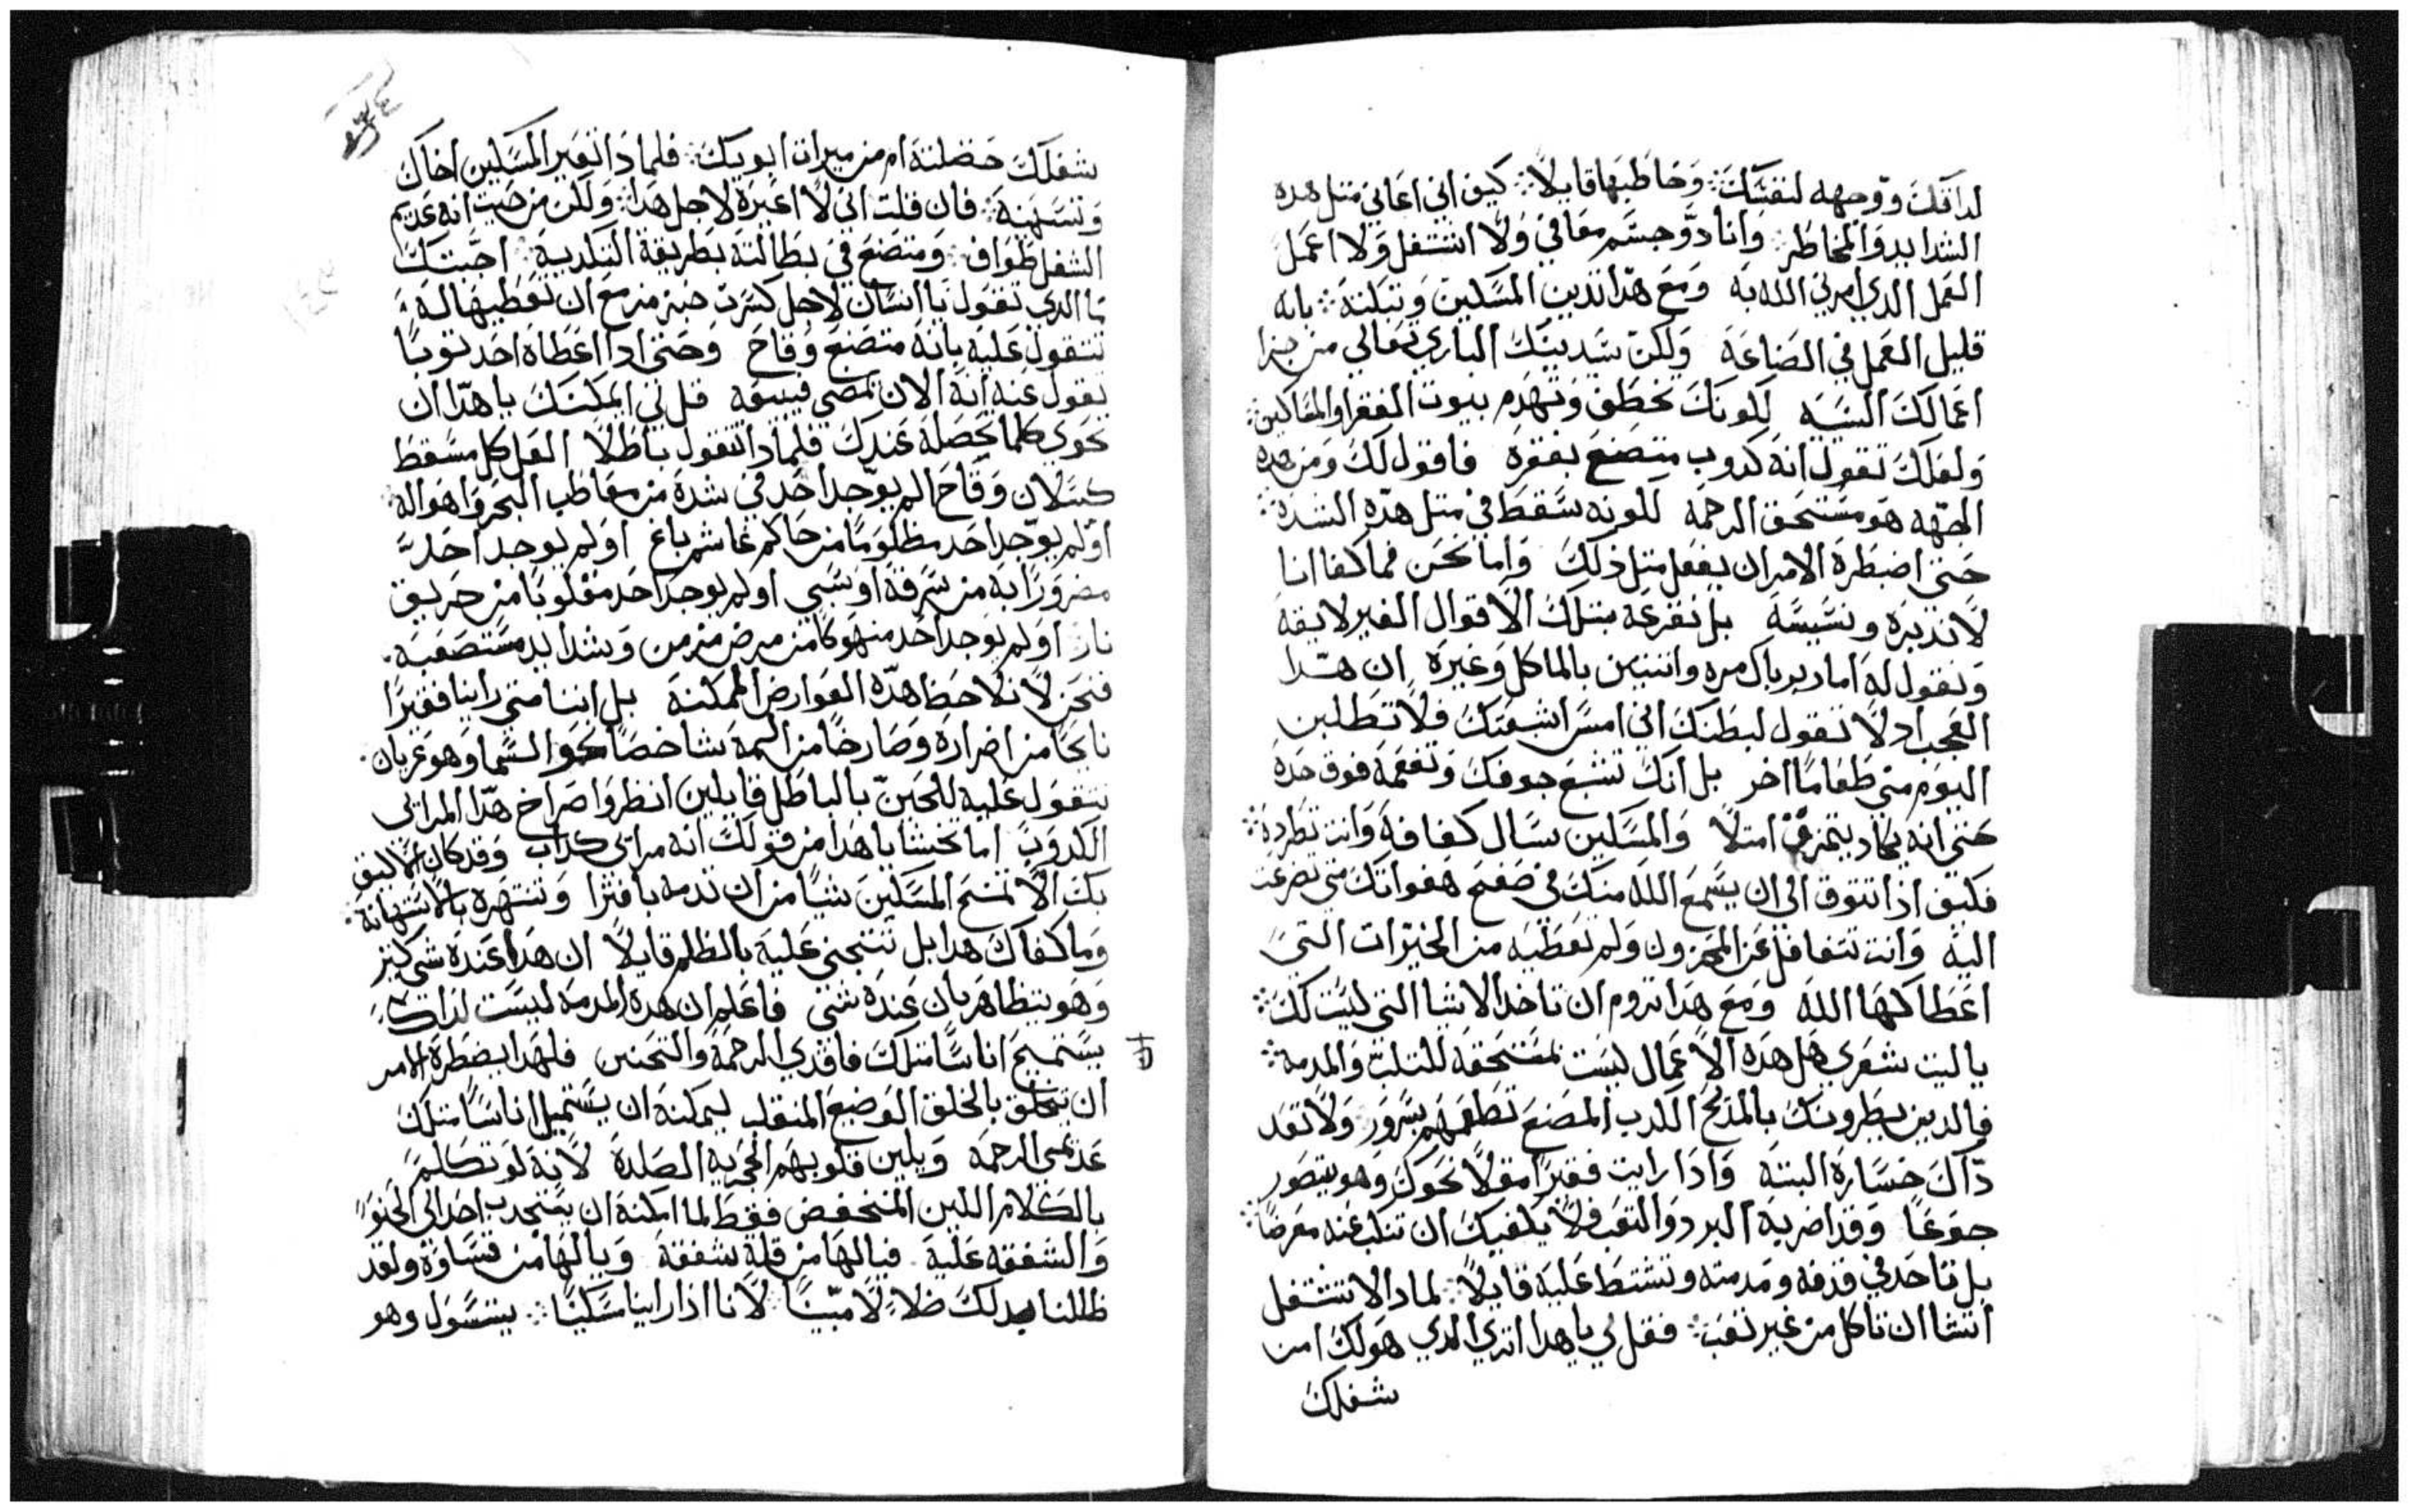 لذاتك ووجهه لنفسك ∴ وخاطبها قايلاً ∴ كيف اني اعاني متل هده
الشدايد والمخاطر ∴ وانا دو جسم معافي ولا اشتغل ولا اعمل
العمل الدي امرني الله به ومع هدا تدين المسكين وتبكته ∴ بانه
قليل العمل في الصناعة ولكن سيدينك الباري تعالي من جرا
اعمالك السيه لكونك تخطف وتهدم بيوت الفقرا والمساكين ∴
ولعلك تقول انه كدوب متصنع بفقره فاقول لك ومن هده
الجهه هو مستحق الرحمه لكونه سقط في متل هده الشدة ∴
حتى اضطره الامر ان يفعل متل ذلك واما نحن فما كفانا اننا
لا نديره ونسيسه بل نقرعه بتلك الاقوال الغير لايقه
ونقول له اما دبرناك مره واتنتين بالماكل وغيره ان هدا
العجب اد لا تقول لبطنك اني امس اشبعتك فلا تطلبين
اليوم مني طعاماً اخر بل انك تشبع جوفك وتفعمه فوق حده
حتى انه يكاد يتمزق امتلا والمسكين يسال كفافه وانت تطرده ∴
فكيف اذا تتوق الي ان يسمع الله منك في صفح هفواتك متى تضرعت
اليه وانت تتغافل عن المحزون ولم تعطيه من الخيرات التي
اعطاكها الله ومع هدا تروم ان تاخد الاشيا التي ليست لك ∴
يا ليت شعري هل هده الاعمال ليست مستحقه للتلب والمدمه ∴
فالدين يطرونك بالمديح الكدب المصنع تطعمهم بسرور ولا تعد
داك خساره البته وادا رايت فقيراً مقبلاً نحوك وهو يتضور
جوعاً وقد اضر به البرد والتعب فلا يكفيك ان تنكب عنه معرضاً ∴
بل تاخد في قدفه ومدمته وتشتط عليه قايلاً ∴ لمادا لا تشتغل
اتشا ان تاكل من غير تعب ∴ فقل لي يا هدا اتري الدي هو لك امن
شغلك
شغلك حصلته ام من ميرات ابويك ∴ فلمادا تعير المسكين اخاك
وتستهينه ∴ فان قلت اني لا اعيره لاجل هدا ∴ ولكن من حيت انه عديم
الشغل طواف ∴ ومتصنع في بطالته بطريقة التكديه ∴ اجبتك
ما الدي تقول يا انسان لاجل كسرت خبز مزمع ان تعطيها له
تتقول عليه بانه متصنع وقاح وحتى ادا اعطاه احد توباً
تقول عنه انه الان يمضي فيبيعه قل لي ايمكنك يا هدا ان
تحوي كلما تحصله عندك فلمادا تتقول باطلاً العل كل مسقط
كسلان وقاح الم يوجد احد في شدة من معاطب البحر واهواله
اولم يوجد احد مظلوماً من حاكم غاشم باغ اولم يوجد احد
مضروراً به من سرقة او سبي اولم يوجد احد مغلوباً من حريق
نار اولم يوجد احد منهوكاً من مرض مزمن وشدايد مستصعبه ∴
فنحن لا نلاحظ هده العوارض الممكنة بل اننا متي راينا فقيراً
نايحاً من اضراره وصارخاً من المه شاخصاً نحو السما وهو عريان ∴
نتقول عليه للحين بالباطل قايلين انظروا صراخ هدا المرايي
الكدوب اما تخشا يا هدا من قولك انه مرايي كداب وقد كان الاليق
بك الا تمنح المسكين شياً من ان تدمه بافترا وتنتهره بالاستهانه ∴
وما كفاك هدا بل تتجني عليه بالظلم قايلاً ان هدا عنده شي كتير
وهو يتظاهر بان عنده شي فاعلم ان هده المدمه ليست لداك
يستميح اناساً متلك فاقدي الرحمة والتحنن فلهدا يضطره الامر
ان يتخلق بالخلق الوضيع المنقلب ليمكنه ان يستميل اناساً متلك
عديمي الرحمه ويلين قلوبهم الحجريه الصلدة لانه لو تكلم
بالكلام اللين المنخفض فقط لما امكنه ان يجدب احد الي الحنو
والشفقه عليه فيا لها من قلة شفقة ويا لها من قساوة ولقد
ظللنا بدلك ضلالاً مبيناً ∴ لاننا اذا راينا مسكيناً ∴ يتسول وهو